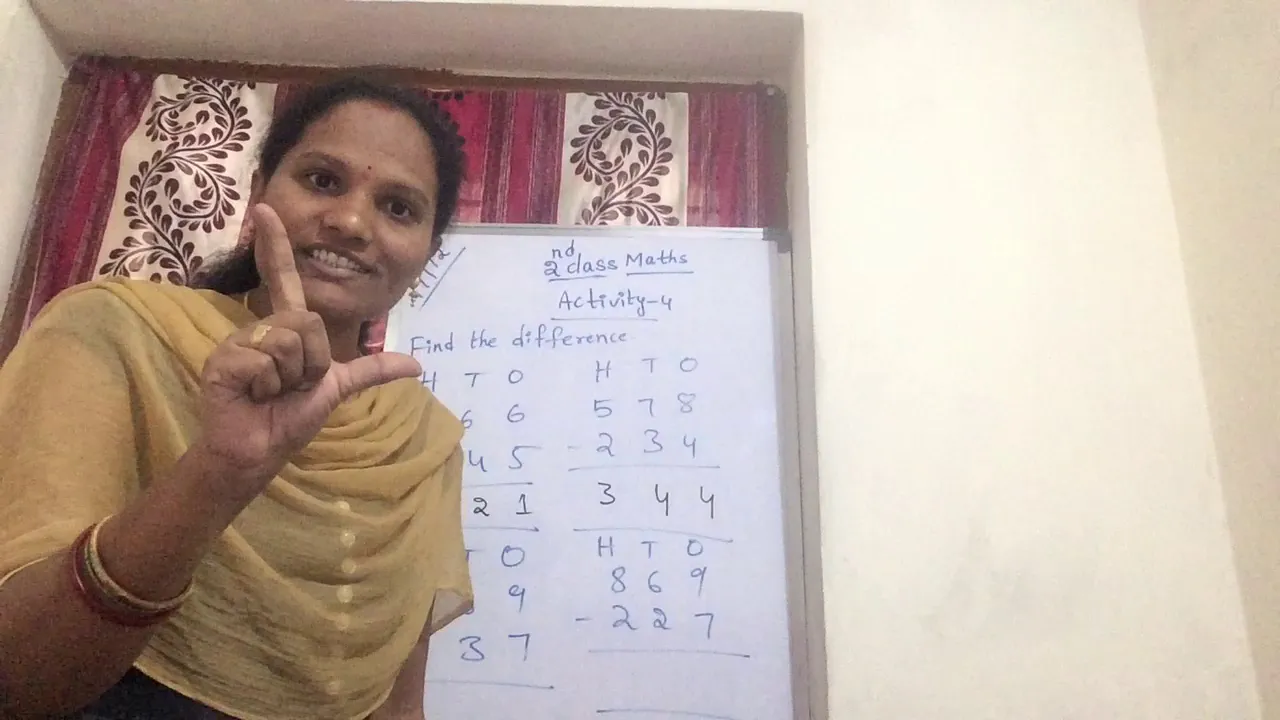 2nd class Maths
Activity-4
Find the difference.
H T O
6 6
4 5
2 1
H T O
5 7 8
- 2 3 4
3 4 4
T O
9
3 7
H T O
8 6 9
- 2 2 7